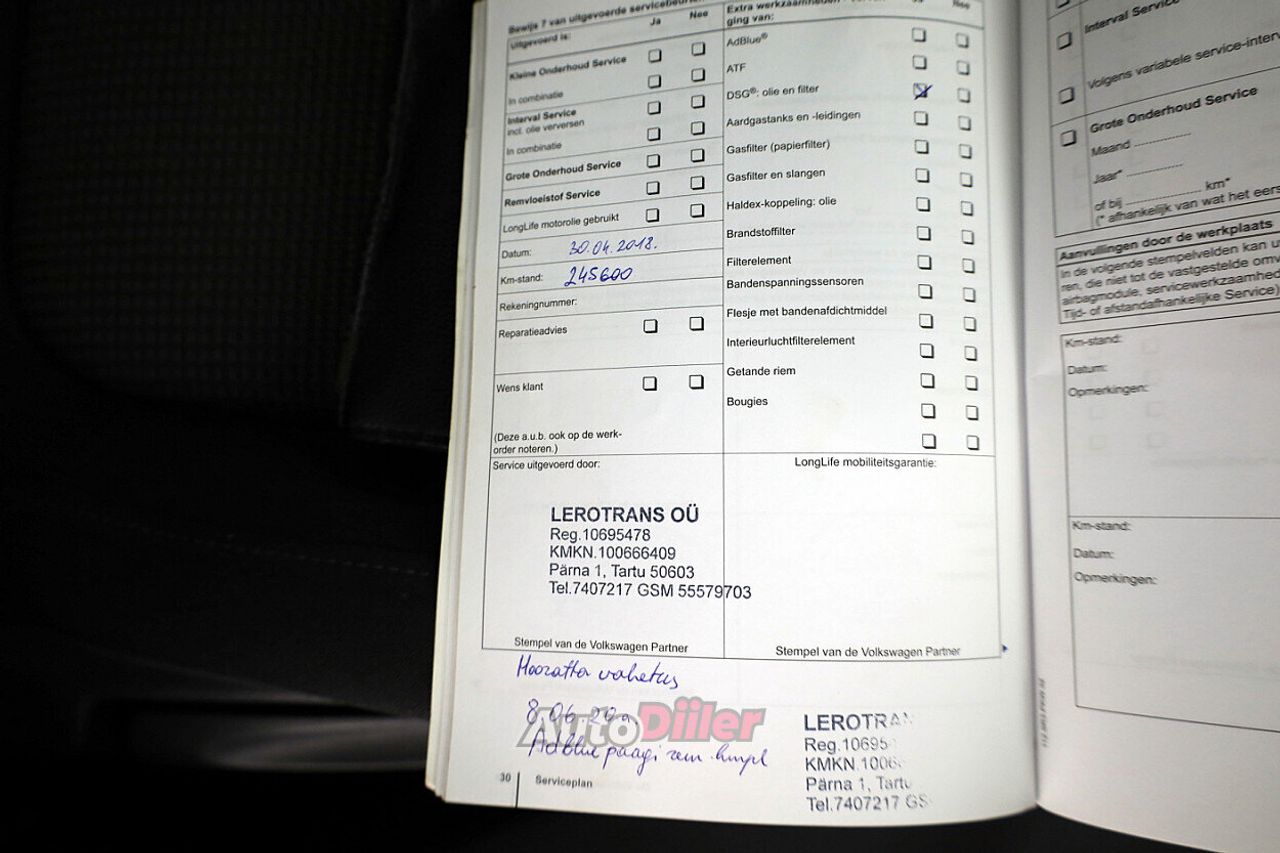 Bewijs 7 van uitgevoerde servicebeurten
Uitgevoerd is: Ja Nee
Kleine Onderhoud Service
In combinatie
Interval Service
incl. olie verversen
In combinatie
Grote Onderhoud Service
Remvloeistof Service
LongLife motorolie gebruikt
Datum: 30.04.2018.
Km-stand: 245600
Rekeningnummer:
Reparatieadvies
Wens klant
(Deze a.u.b. ook op de werk-
order noteren.)
Extra werkzaamheden
ging van:
Nee
AdBlue®
ATF
DSG®: olie en filter
Aardgastanks en -leidingen
Gasfilter (papierfilter)
Gasfilter en slangen
Haldex-koppeling: olie
Brandstoffilter
Filterelement
Bandenspanningssensoren
Flesje met bandenafdichtmiddel
Interieurluchtfilterelement
Getande riem
Bougies
Service uitgevoerd door:
LEROTRANS OÜ
Reg.10695478
KMKN.100666409
Pärna 1, Tartu 50603
Tel.7407217 GSM 55579703
Stempel van de Volkswagen Partner
LongLife mobiliteitsgarantie:
Stempel van de Volkswagen Partner
Hooratta vahetus
8.06.20a.
AdBlue paagi rem. kmpl
AutoDiiler
LEROTRAN
Reg.10695
KMKN.1006
Pärna 1, Tartu
Tel.7407217 GS
30 Serviceplan
Interval Service
Volgens variabele service-interv
Grote Onderhoud Service
Maand
Jaar*
of bij km*
(* afhankelijk van wat het eers
Aanvullingen door de werkplaats
In de volgende stempelvelden kan u
ren, die niet tot de vastgestelde omv
airbagmodule, servicewerkzaamhed
Tijd- of afstandafhankelijke Service)
Km-stand:
Datum:
Opmerkingen:
Km-stand:
Datum:
Opmerkingen: